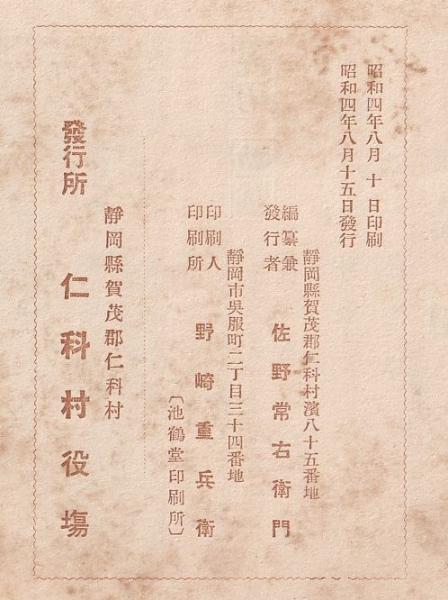 昭和四年八月十日印刷
昭和四年八月十五日發行
靜岡縣賀茂郡仁科村濱八十五番地
編纂兼
發行者
佐野常右衛門
靜岡市吳服町二丁目三十四番地
印刷人
印刷所
野崎重兵衛
〔池鶴堂印刷所〕
靜岡縣賀茂郡仁科村
發行所 仁科村役塲